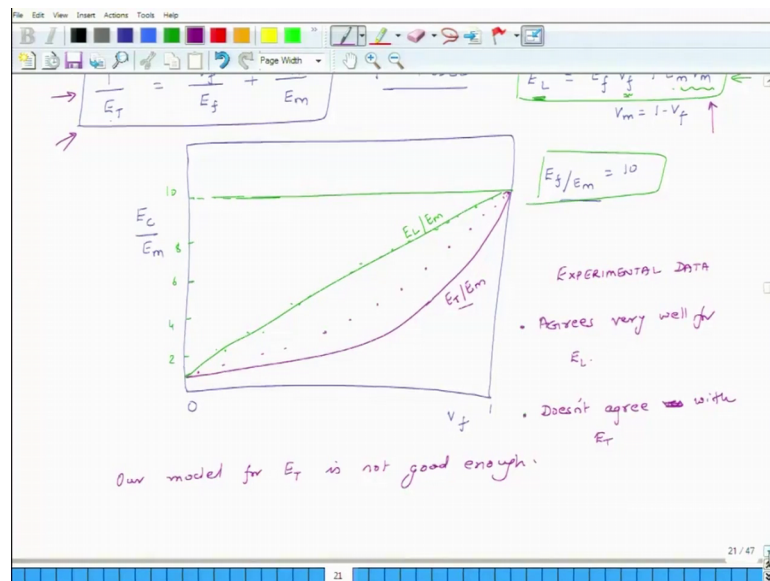 File Edit View Insert Actions Tools Help
B I
Page Width
1/E_T = /E_f + /E_m
E_L = E_f V_f + E_m V_m
V_m = 1 - V_f
E_f/E_m = 10
10
8
6
4
2
E_c/E_m
E_L/E_m
E_T/E_m
0
V_f
1
EXPERIMENTAL DATA
• Agrees very well for
E_L.
• Doesn't agree with
E_T
Our model for E_T is not good enough.
21 / 47
21